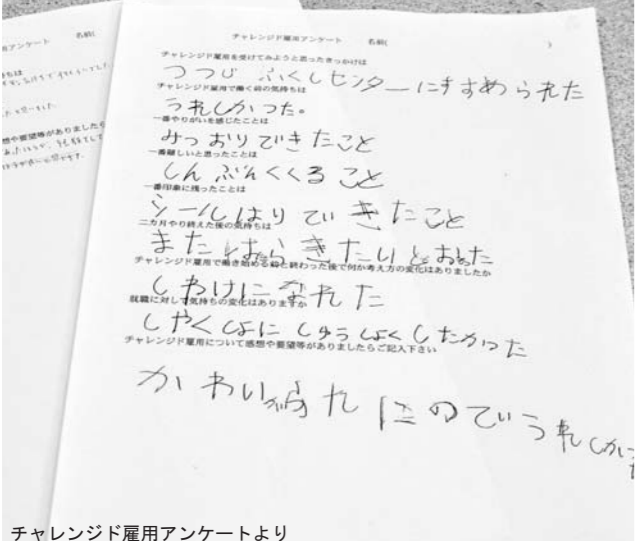 チャレンジド雇用アンケート 名前( )
チャレンジド雇用を受けてみようと思ったきっかけは
つつじ ふくしセンターにすすめられた
チャレンジド雇用で働く前の気持ちは
うれしかった。
一番やりがいを感じたことは
みつおりできたこと
一番難しいと思ったことは
しんぶんくくること
一番印象に残ったことは
シールはりできたこと
二カ月やり終えた後の気持ちは
またはらきたいとおもた
チャレンジド雇用で働き始める前と終わった後で何か考え方の変化はありましたか
しわけになれた
就職に対して気持ちの変化はありますか
しやくしよにしゅうしょくしたかった
チャレンジド雇用について感想や要望等がありましたらご記入下さい
うれしかった
アンケート 名前(
チャレンジド雇用アンケートより